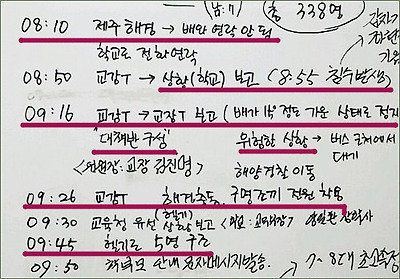 총 338명
08:10 제주해경 → 배와 연락 안 됨
학교로 전화연락
08:50 교감T → 상황(학교) 보고 (8:55 침수발생)
09:16 교감T → 교장T 보고 (배가 15° 정도 기운 상태로 정지
"대책반 구성" 위험한 상황 → 버스 로비에서
<위원장: 교장 김진명> 해양경찰 이동 대기
09:26 교감T 해경출동, 구명조끼 전원 착용
09:30 교육청 유선 상황 보고
(헬기)
09:45 헬기로 5명 구조
09:50 학부모 안내 문자메시지발송.